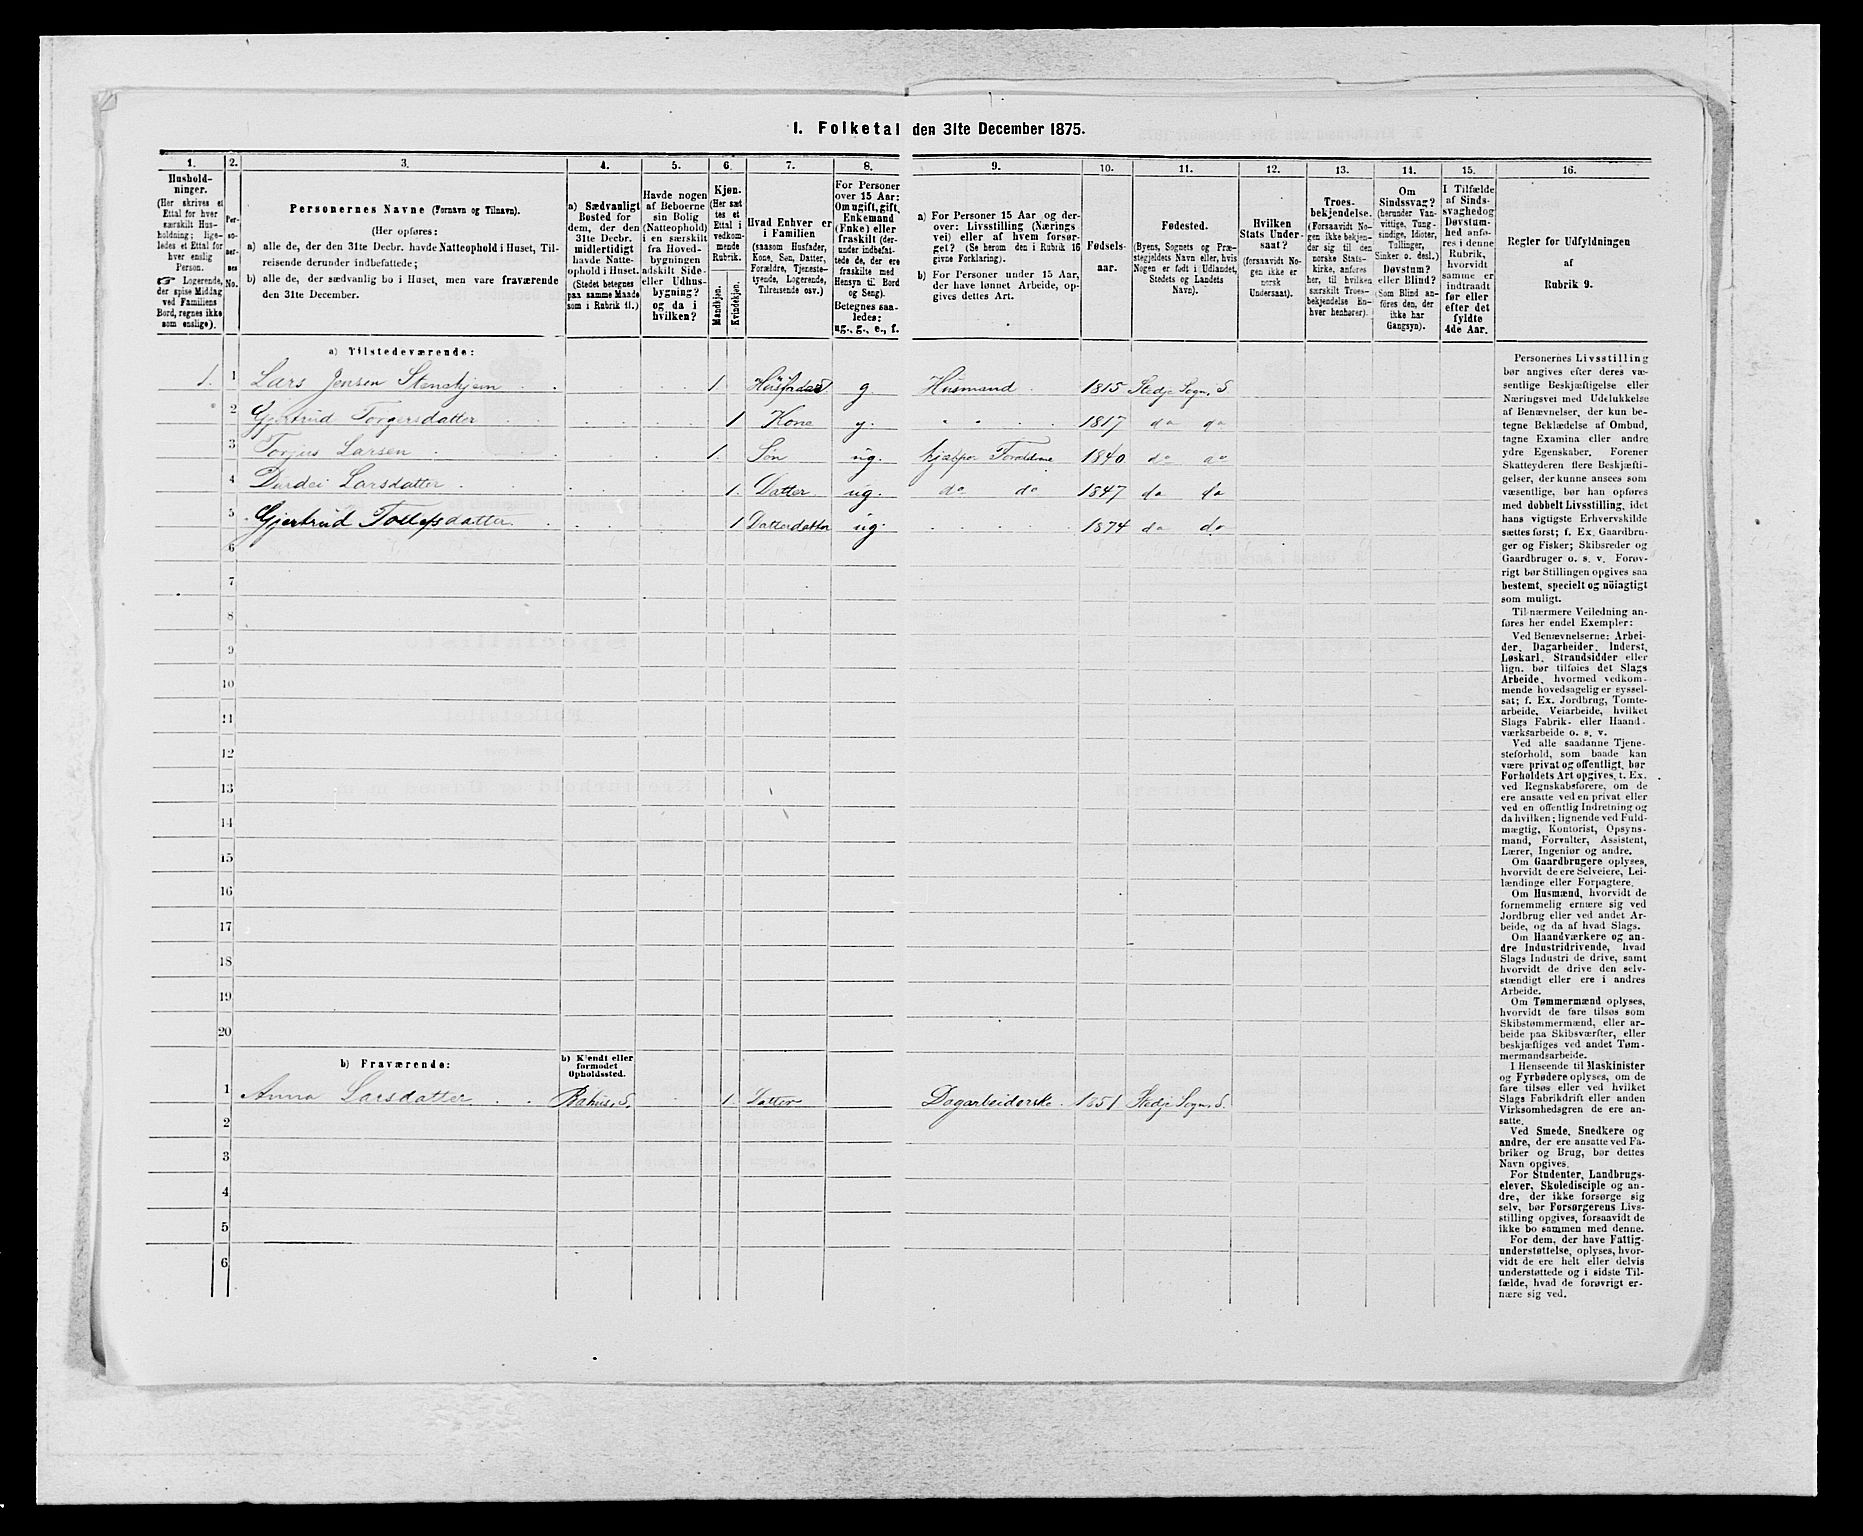 1. Folketal den 31te December 1875.
1. 2. 3. 4. 5. 6. 7. 8. 9. 10. 11. 12. 13. 14. 15. 16.
Hushold-
ninger.
(Her skrives et
Ettal for hver
særskilt Hus-
holdning; lige-
ledes et Ettal for
hver enslig
Person.
☞ Logerende,
der spise Middag
ved Familiens
Bord, regnes ikke
som enslige).
Per-
so-
ner-
nes
No.
Personernes Navne (Fornavn og Tilnavn).
(Her opføres:
a) alle de, der den 31te Decbr. havde Natteophold i Huset, Til-
reisende derunder indbefattede;
b) alle de, der sædvanlig bo i Huset, men vare fraværende
den 31te December.
a) Sædvanligt
Bosted for
dem, der den
31te Decbr.
midlertidigt
havde Natte-
ophold i Huset.
(Stedet betegnes
paa samme Maade
som i Rubrik 11.)
Havde nogen
af Beboerne
sin Bolig
(Natteophold)
i en særskilt
fra Hoved-
bygningen
adskilt Side-
eller Udhus-
bygning?
og da i
hvilken?
Kjøn.
(Her sæt
tes et
Ettal i
vedkom-
mende
Rubrik.
Mandkjøn.
Kvindekjøn.
Hvad Enhver er
i Familien
(saasom Husfader,
Kone, Søn, Datter,
Forældre, Tjeneste-
tyende, Logerende,
Tilreisende osv.)
For Personer
over 15 Aar:
Om ugift, gift,
Enkemand
(Enke) eller
fraskilt (der-
under indbefat-
tede de, der ere
fraskilte med
Hensyn til Bord
og Seng).
Betegnes saa-
ledes:
ug., g., e., f.
a) For Personer 15 Aar og der-
over: Livsstilling (Nærings
vei) eller af hvem forsør-
get? (Se herom den i Rubrik 16
givne Forklaring).
b) For Personer under 15 Aar,
der have lønnet Arbeide, op-
gives dettes Art.
Fødsels-
aar.
Fødested.
(Byens, Sognets og Præ-
stegjeldets Navn eller, hvis
Nogen er født i Udlandet,
Stedets og Landets
Navn).
Hvilken
Stats Under-
saat?
(forsaavidt No-
gen ikke er
norsk
Undersaat).
Troes-
bekjendelse.
(Forsaavidt No-
gen ikke bekjen-
der sig til den
norske Stats-
kirke, anføres
her, til hvilken
særskilt Troes-
bekjendelse En-
hver henhører).
Om
Sindssvag?
(herunder Van-
vittige, Tung-
sindige, Idioter,
Tullinger,
Sinker o. desl.)
Døvstum?
eller Blind?
(Som Blind an-
føres den, der
ikke har
Gangsyn).
I Tilfælde
af Sinds-
svaghed og
Døvstum-
hed anfø-
res i denne
Rubrik,
hvorvidt
samme er
indtraadt
før eller
efter det
fyldte
4de Aar.
Regler for Udfyldningen
af
Rubrik 9.
a) Tilstedeværende:
1. 1 Lars Jensen Stenehjem 1. Husfader g. Husmand 1815 Stedje Sogn, S.
2 Gjertrud Torgersdatter 1 Kone g. " " 1817 do do
3 Torjus Larsen 1. Søn ug. hjælper Forældrene 1840 do do
4 Durdei Larsdatter 1. Datter ug. do do 1847 do do
5 Gjertrud Tollefsdatter 1 Datterdatter ug. 1874 do do
6
7
8
9
10
11
12
13
14
15
16
17
18
19
20
b) Fraværende:
b) Kjendt eller
formodet
Opholdssted.
1 Anna Larsdatter 1. Datter Dagarbeiderske 1851 Stedje Sogn, S.
2
3
4
5
6
Personernes Livsstilling
bør angives efter deres væ-
sentlige Beskjæftigelse eller
Næringsvei med Udelukkelse
af Benævnelser, der kun be-
tegne Beklædelse af Ombud,
tagne Examina eller andre
ydre Egenskaber. Forener
Skatteyderen flere Beskjæfti-
gelser, der kunne ansees som
væsentlige, bør han opføres
med dobbelt Livsstilling, idet
hans vigtigste Erhvervskilde
sættes først; f. Ex. Gaardbru-
ger og Fisker; Skibsreder og
Gaardbruger o. s. v. Forøv-
rigt bør Stillingen opgives saa
bestemt, specielt og nöiagtigt
som muligt.
Til nærmere Veiledning an-
føres her endel Exempler:
Ved Benævnelserne: Arbei-
der, Dagarbeider, Inderst,
Løskarl, Strandsidder eller
lign. bør tilføies det Slags
Arbeide, hvormed vedkom-
mende hovedsagelig er syssel-
sat; f. Ex. Jordbrug, Tomte-
arbeide, Veiarbeide, hvilket
Slags Fabrik- eller Haand-
værksarbeide o. s. v.
Ved alle saadanne Tjene-
steforhold, som baade kan
være privat og offentligt, bør
Forholdets Art opgives, t. Ex.
ved Regnskabsførere, om de
ere ansatte ved en privat eller
ved en offentlig Indretning og
da hvilken; lignende ved Fuld-
mægtig, Kontorist, Opsyns-
mand, Forvalter, Assistent,
Lærer, Ingeniør og andre.
Om Gaardbrugere oplyses,
hvorvidt de ere Selveiere, Lei-
lændinge eller Forpagtere.
Om Husmænd, hvorvidt de
fornemmelig ernære sig ved
Jordbrug eller ved andet Ar-
beide, og da af hvad Slags.
Om Haandværkere og an-
dre Industridrivende, hvad
Slags Industri de drive, samt
hvorvidt de drive den selv-
stændigt eller ere i andres
Arbeide.
Om Tømmermænd oplyses,
hvorvidt de fare tilsøs som
Skibstømmermænd, eller ar-
beide paa Skibsværfter, eller
beskjæftiges ved andet Tøm-
mermandsarbeide.
I Henseende til Maskinister
og Fyrbødere oplyses, om de
fare tilsøs eller ved hvilket
Slags Fabrikdrift eller anden
Virksomhedsgren de ere an-
satte.
Ved Smede, Snedkere og
andre, der ere ansatte ved Fa-
briker og Brug, bør dettes
Navn opgives.
For Studenter, Landbrugs-
elever, Skoledisciple og an-
dre, der ikke forsørge sig
selv, bør Forsørgerens Livs-
stilling opgives, forsaavidt de
ikke bo sammen med denne.
For dem, der have Fattig-
understøttelse, oplyses, hvor-
vidt de ere helt eller delvis
understøttede og i sidste Til-
fælde, hvad de forøvrigt er-
nære sig ved.